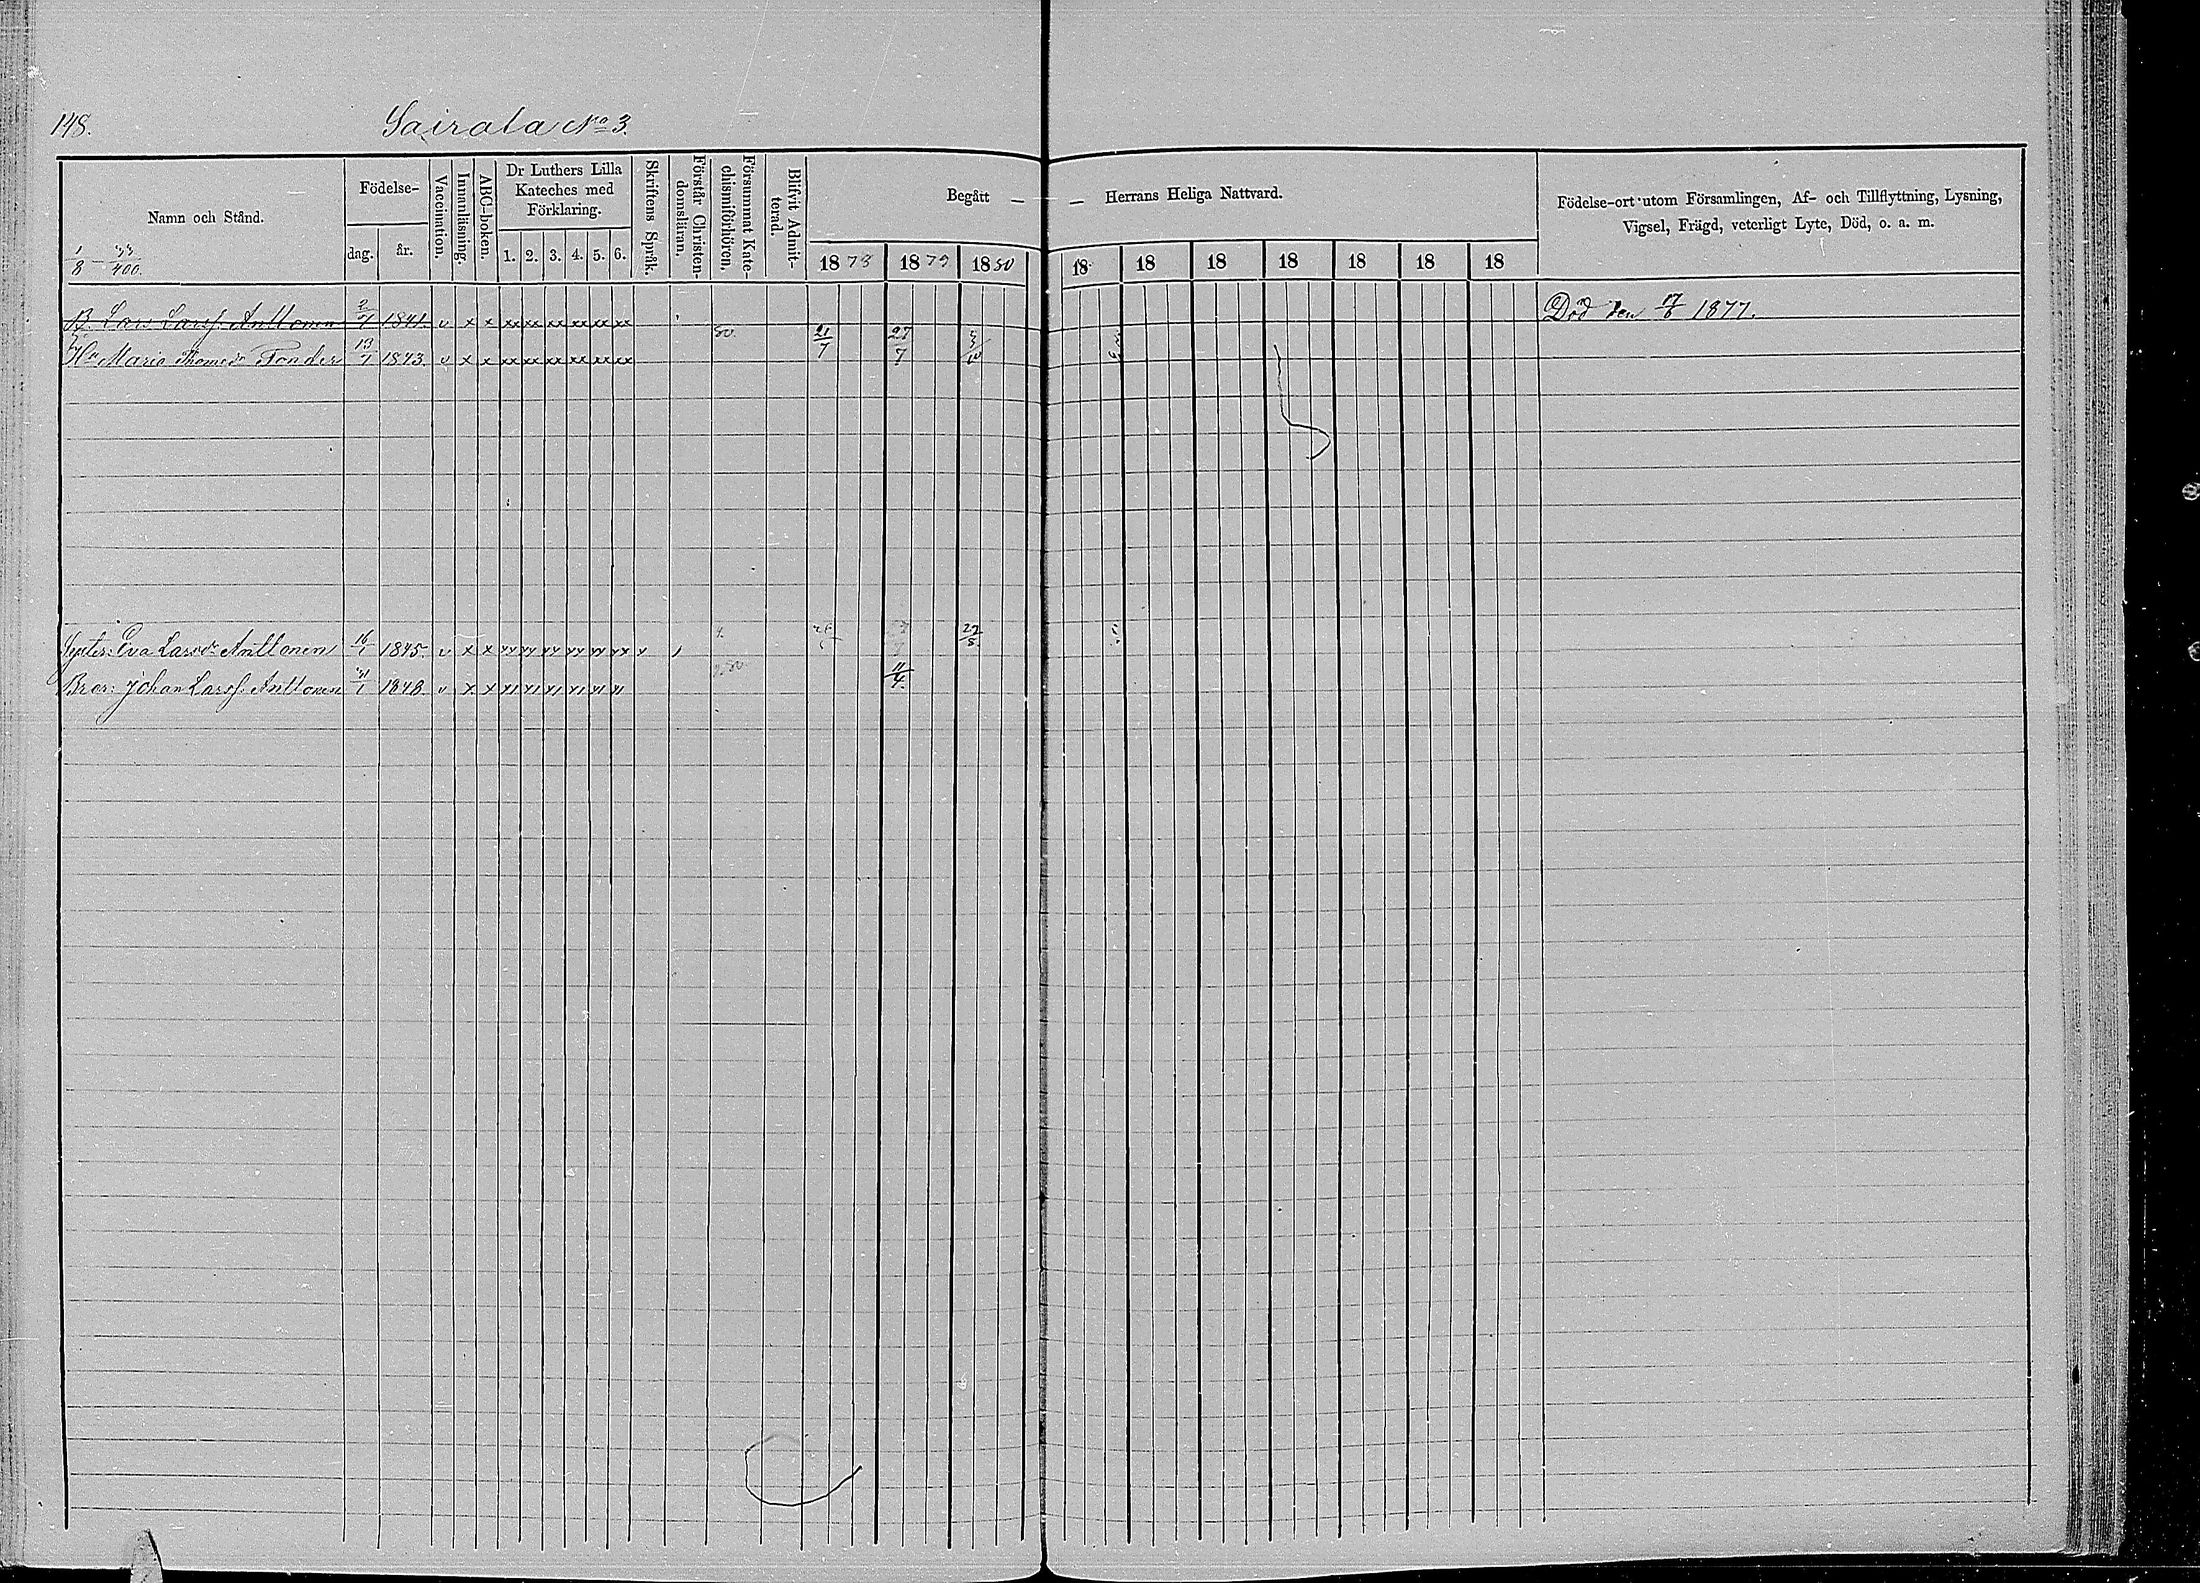 148. Sairala No 3.
Namn och Stånd.
Födelse-
dag. år.
Vaccination.
Innanläsning.
ABC-boken.
Dr Luthers Lilla
Kateches med
Förklaring.
1. 2. 3. 4. 5. 6.
Skriftens Språk.
Förstår Christen-
domsläran.
Försummat Kate-
chismiförhören.
Blifvit Admit-
terad.
Begått — — Herrans Heliga Nattvard.
1878 1879 1880 18 18 18 18 18 18 18
Födelse-ort utom Församlingen, Af- och Tillflyttning, Lysning,
Vigsel, Frägd, veterligt Lyte, Död, o. a. m.
1/8 - 33/400.
B. Lars Larsf. Anttonen 2/7 1841. v x x xx xx xx xx xx xx Död den 17/6 1877.
Ha Maria Thomed. Fonder 13/1 1843. v x x xx xx xx xx xx xx 80. 21/7 27/7 3/10
Syster: Eva Larsdr Anttonen 16/1 1845. v x x 27/5.
Bror: Johan Larsf. Anttonen 1848. v x x 11/4.